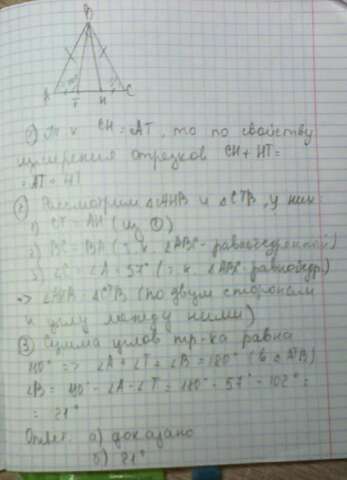 B
A T H C
① Т. к CH = AT, то по свойству
измерения отрезков CH + HT =
= AT + HT
② Рассмотрим △AHB и △CTB, у них:
1) CT = AH (из ①)
2) BC = BA (т. к. △ABC - равнобедренный)
3) ∠C = ∠A = 57° (т. к. △ABC равнобедр)
=> △AHB = △CTB (по двум сторонам
и углу между ними)
③ Сумма углов тр-ка равна
180° => ∠A + ∠T + ∠B = 180° (в △ATB)
∠B = 180° - ∠A - ∠T = 180° - 57° - 102° =
= 21°
Ответ: а) доказано
б) 21°